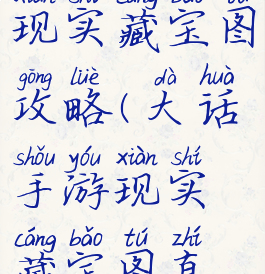 现实藏宝图
gōng lüè dà huà
攻略(大话
shǒu yóu xiàn shí
手游现实
cáng bǎo tú zhí
藏宝图直